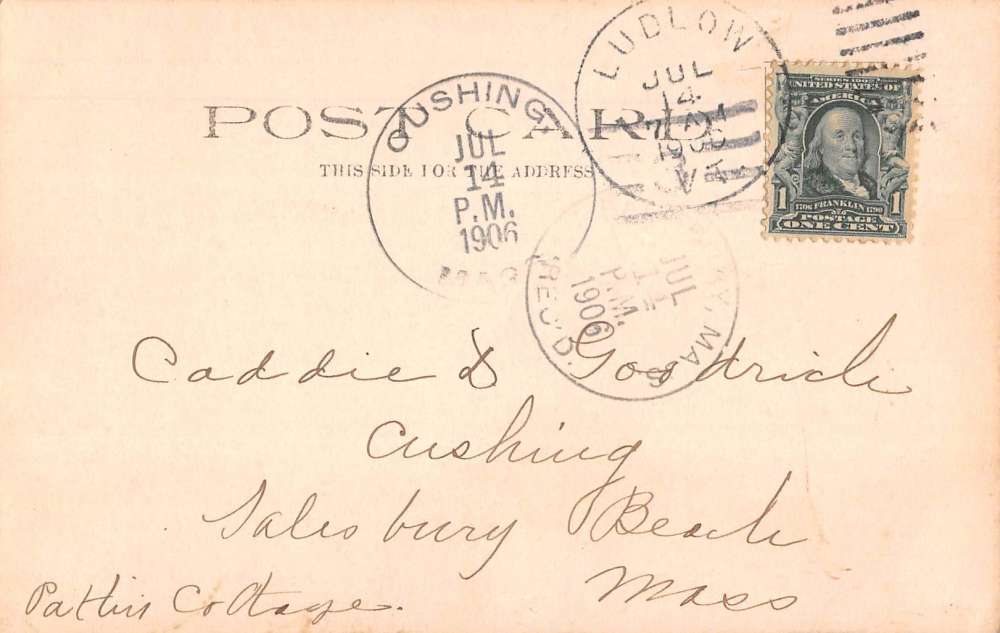 LUDLOW
JUL
14
1906
VT.
SERIES 1902
UNITED STATES OF
AMERICA
1 1706 FRANKLIN 1790 1
POSTAGE
ONE CENT
POST CARD
THIS SIDE FOR THE ADDRESS
CUSHING,
JUL
14
P.M.
1906
MASS
JUL
P.M.
1906
REC'D.
Caddie D Goodrich
Cushing
Salesbury Beach
Mass
Cottage.